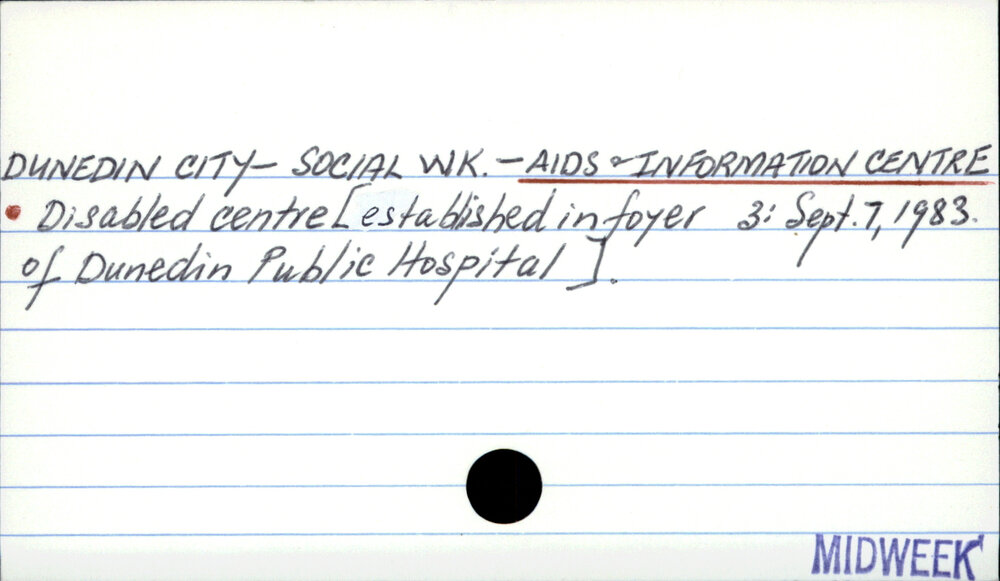 DUNEDIN CITY – SOCIAL WK. – AIDS & INFORMATION CENTRE
• Disabled centre [established in foyer 3: Sept. 7, 1983.
of Dunedin Public Hospital].
MIDWEEK